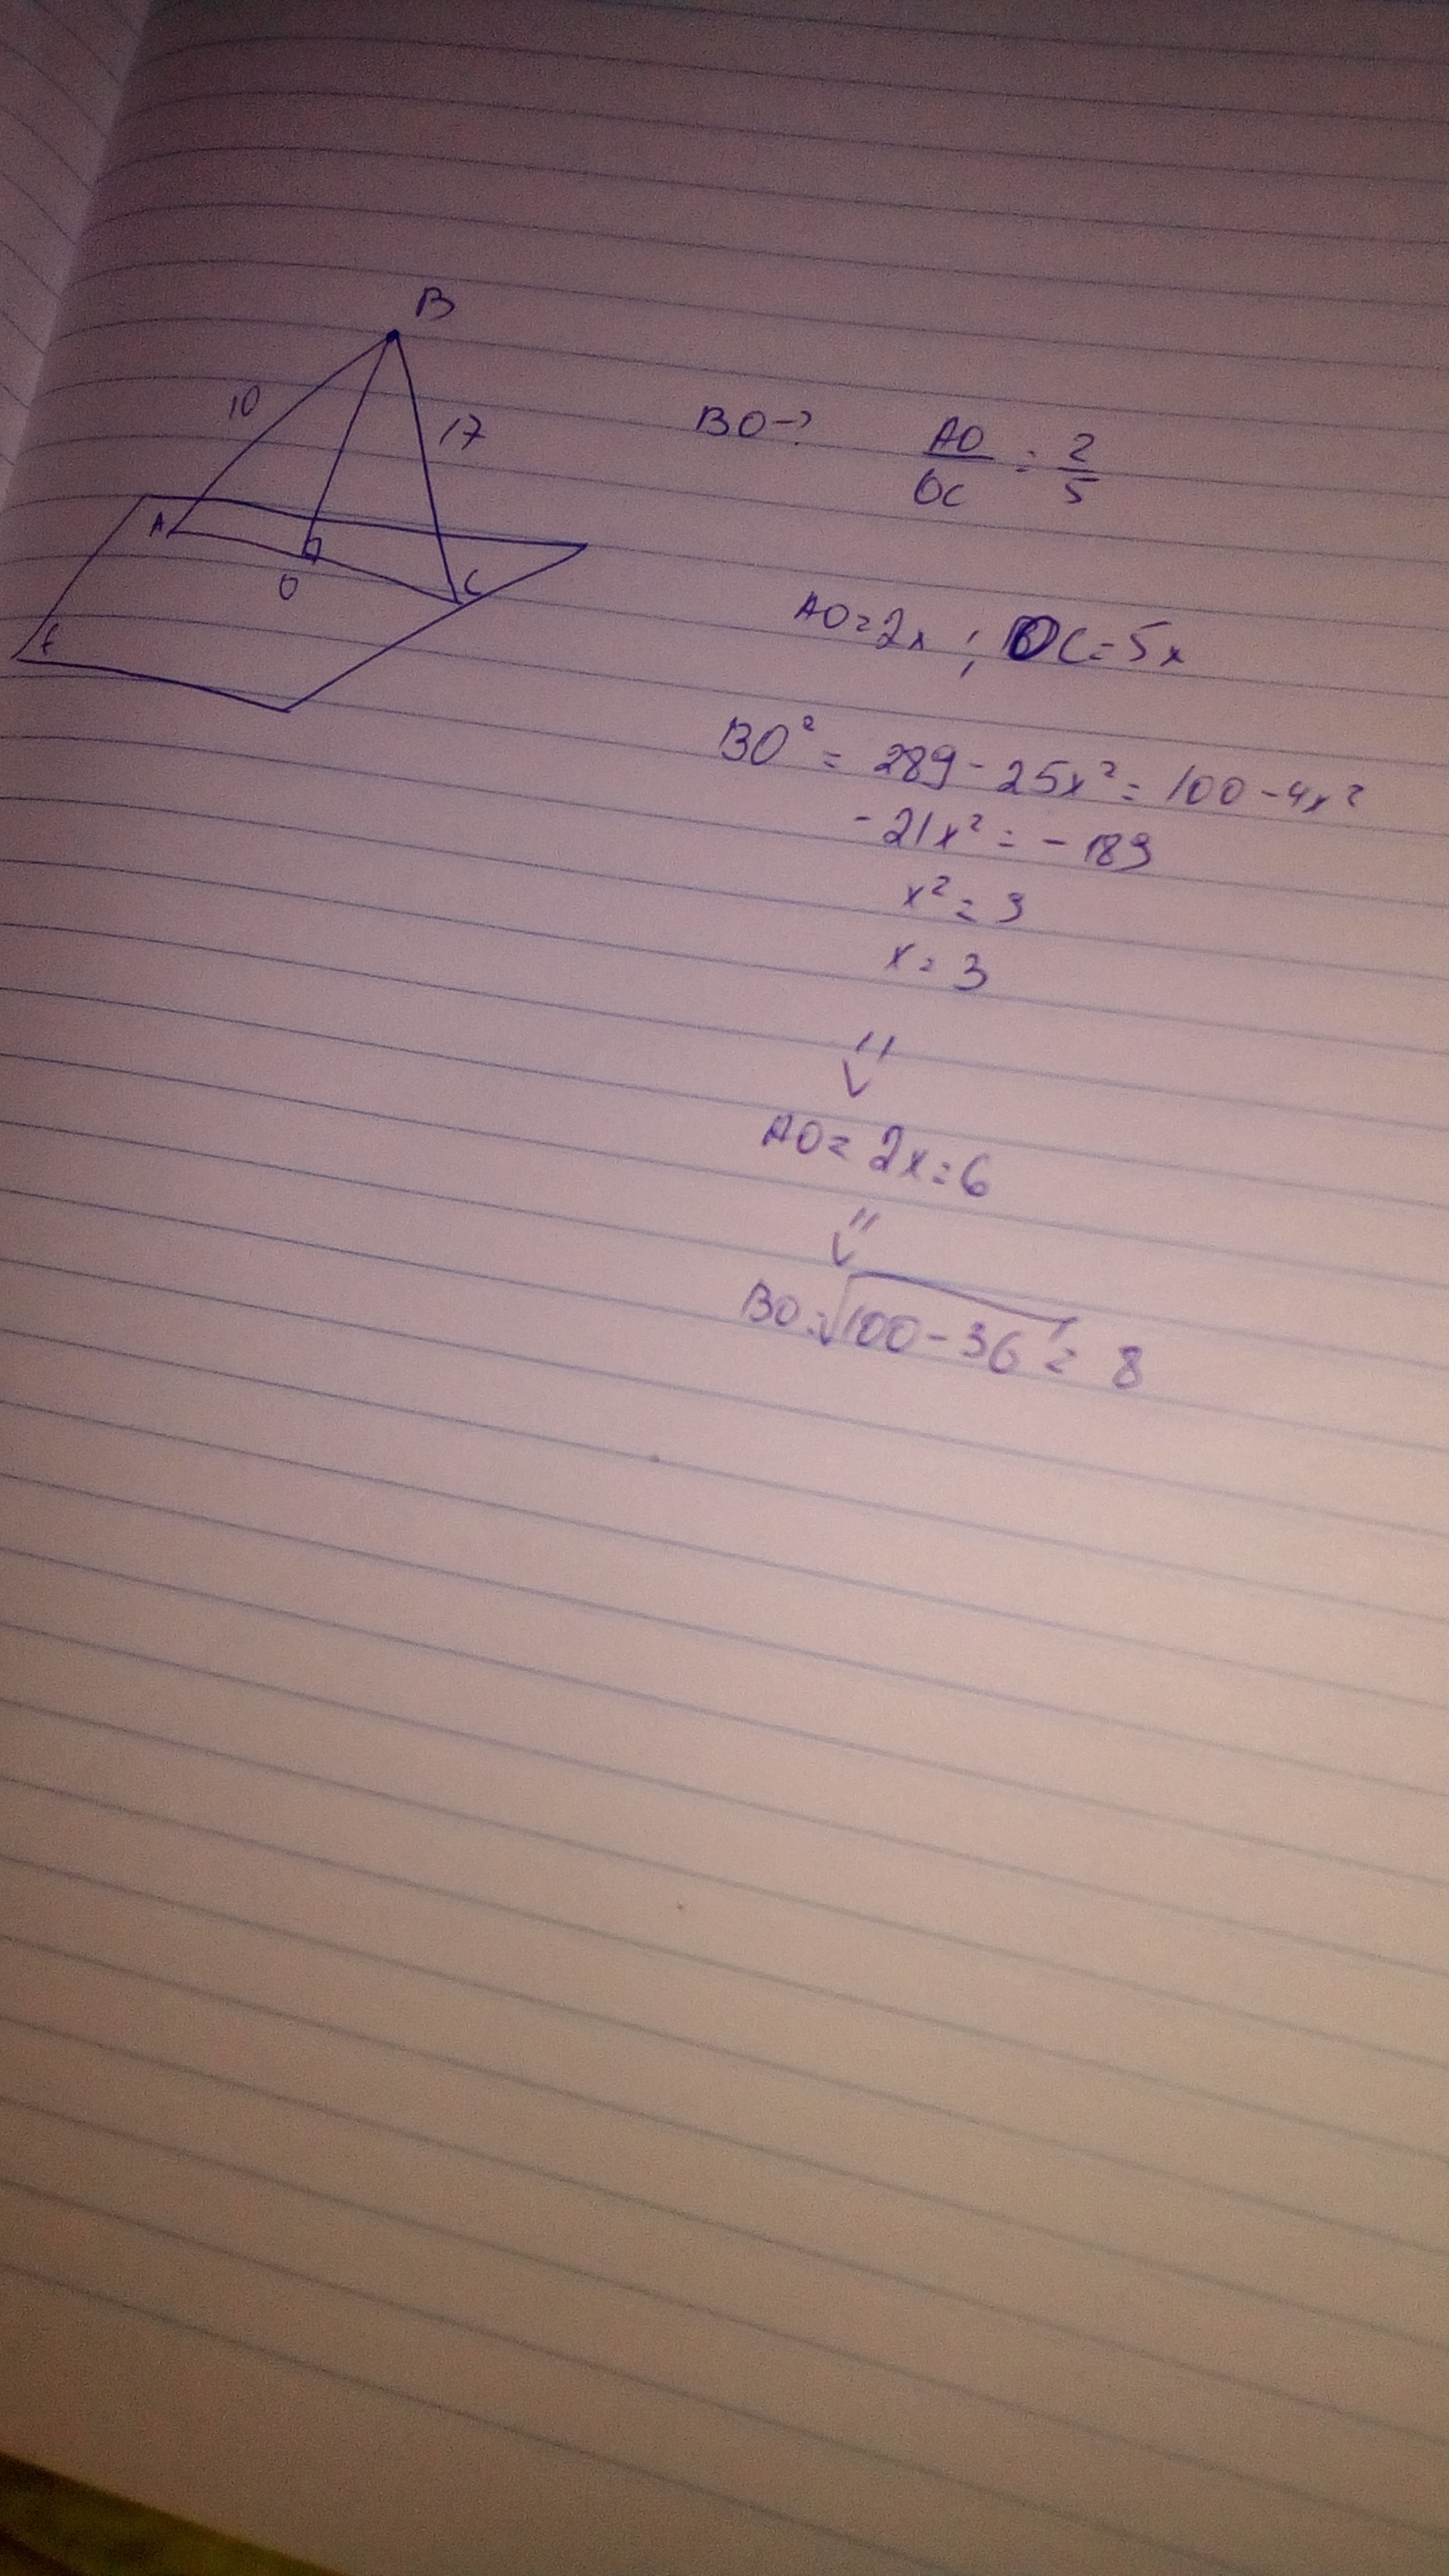 B
10
17
A
O
C
f
BO-? AO/OC = 2/5
AO=2x ; OC=5x
BO² = 289-25x² = 100-4x²
-21x² = -189
x² = 9
x = 3
AO = 2x = 6
BO = √100-36 = 8